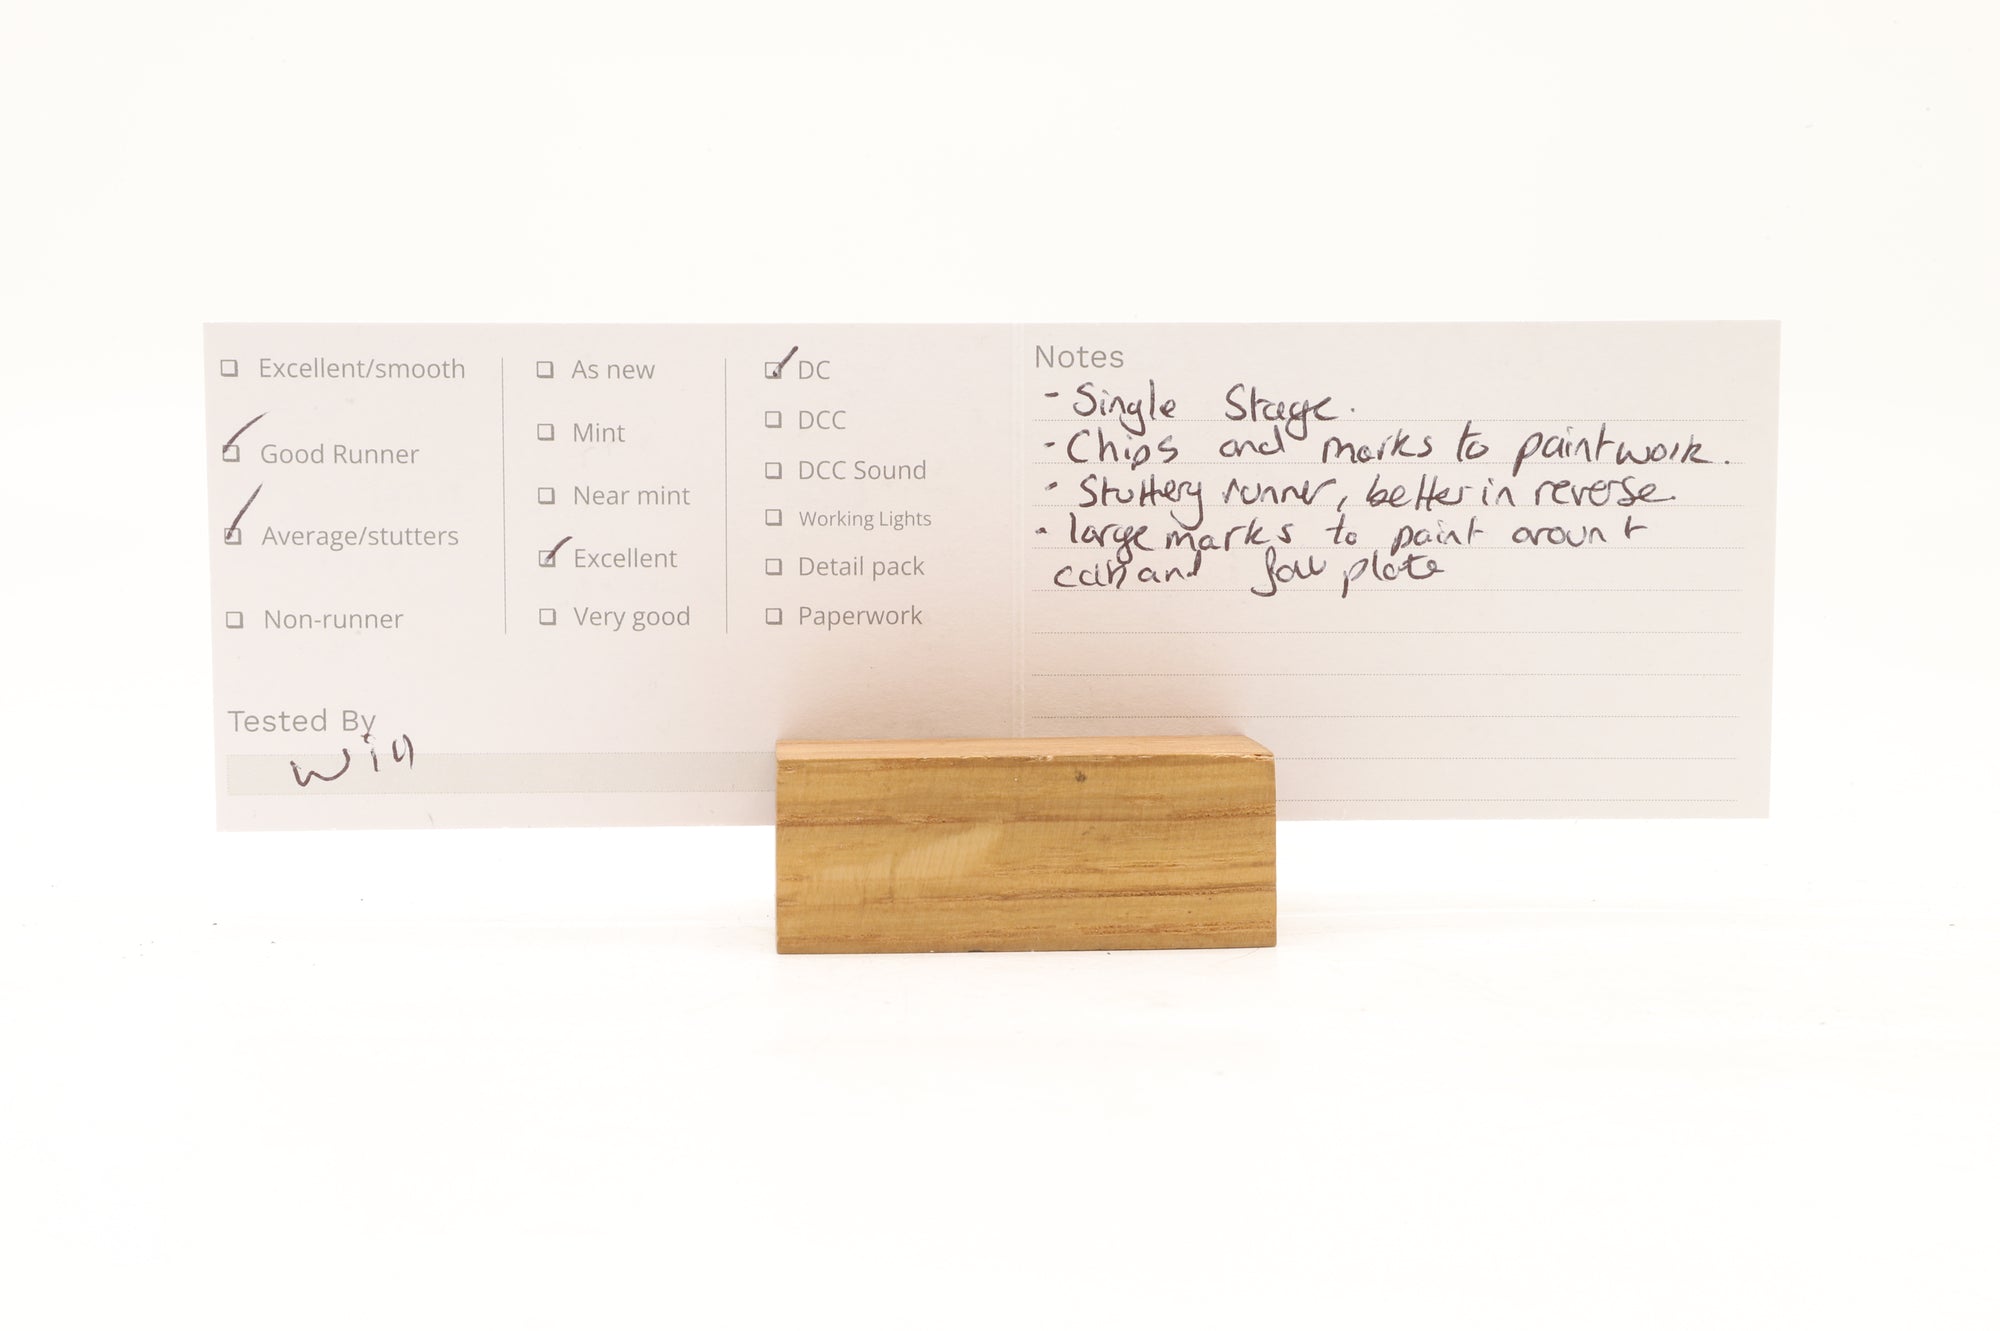 Excellent/smooth
Good Runner
Average/stutters
Non-runner
Tested By
Will
As new
Mint
Near mint
Excellent
Very good
DC
DCC
DCC Sound
Working Lights
Detail pack
Paperwork
Notes
- Single Stage.
- Chips and marks to paintwork.
- Stuttery runner, better in reverse.
- large marks to paint
and plate